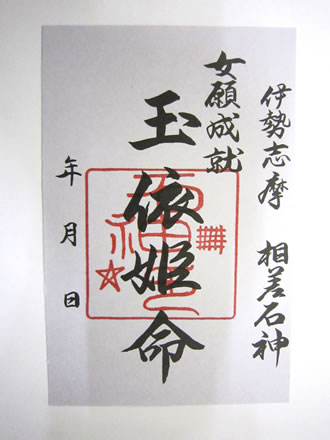 伊勢志摩 相差石神
女願成就
玉依姫命
年 月 日